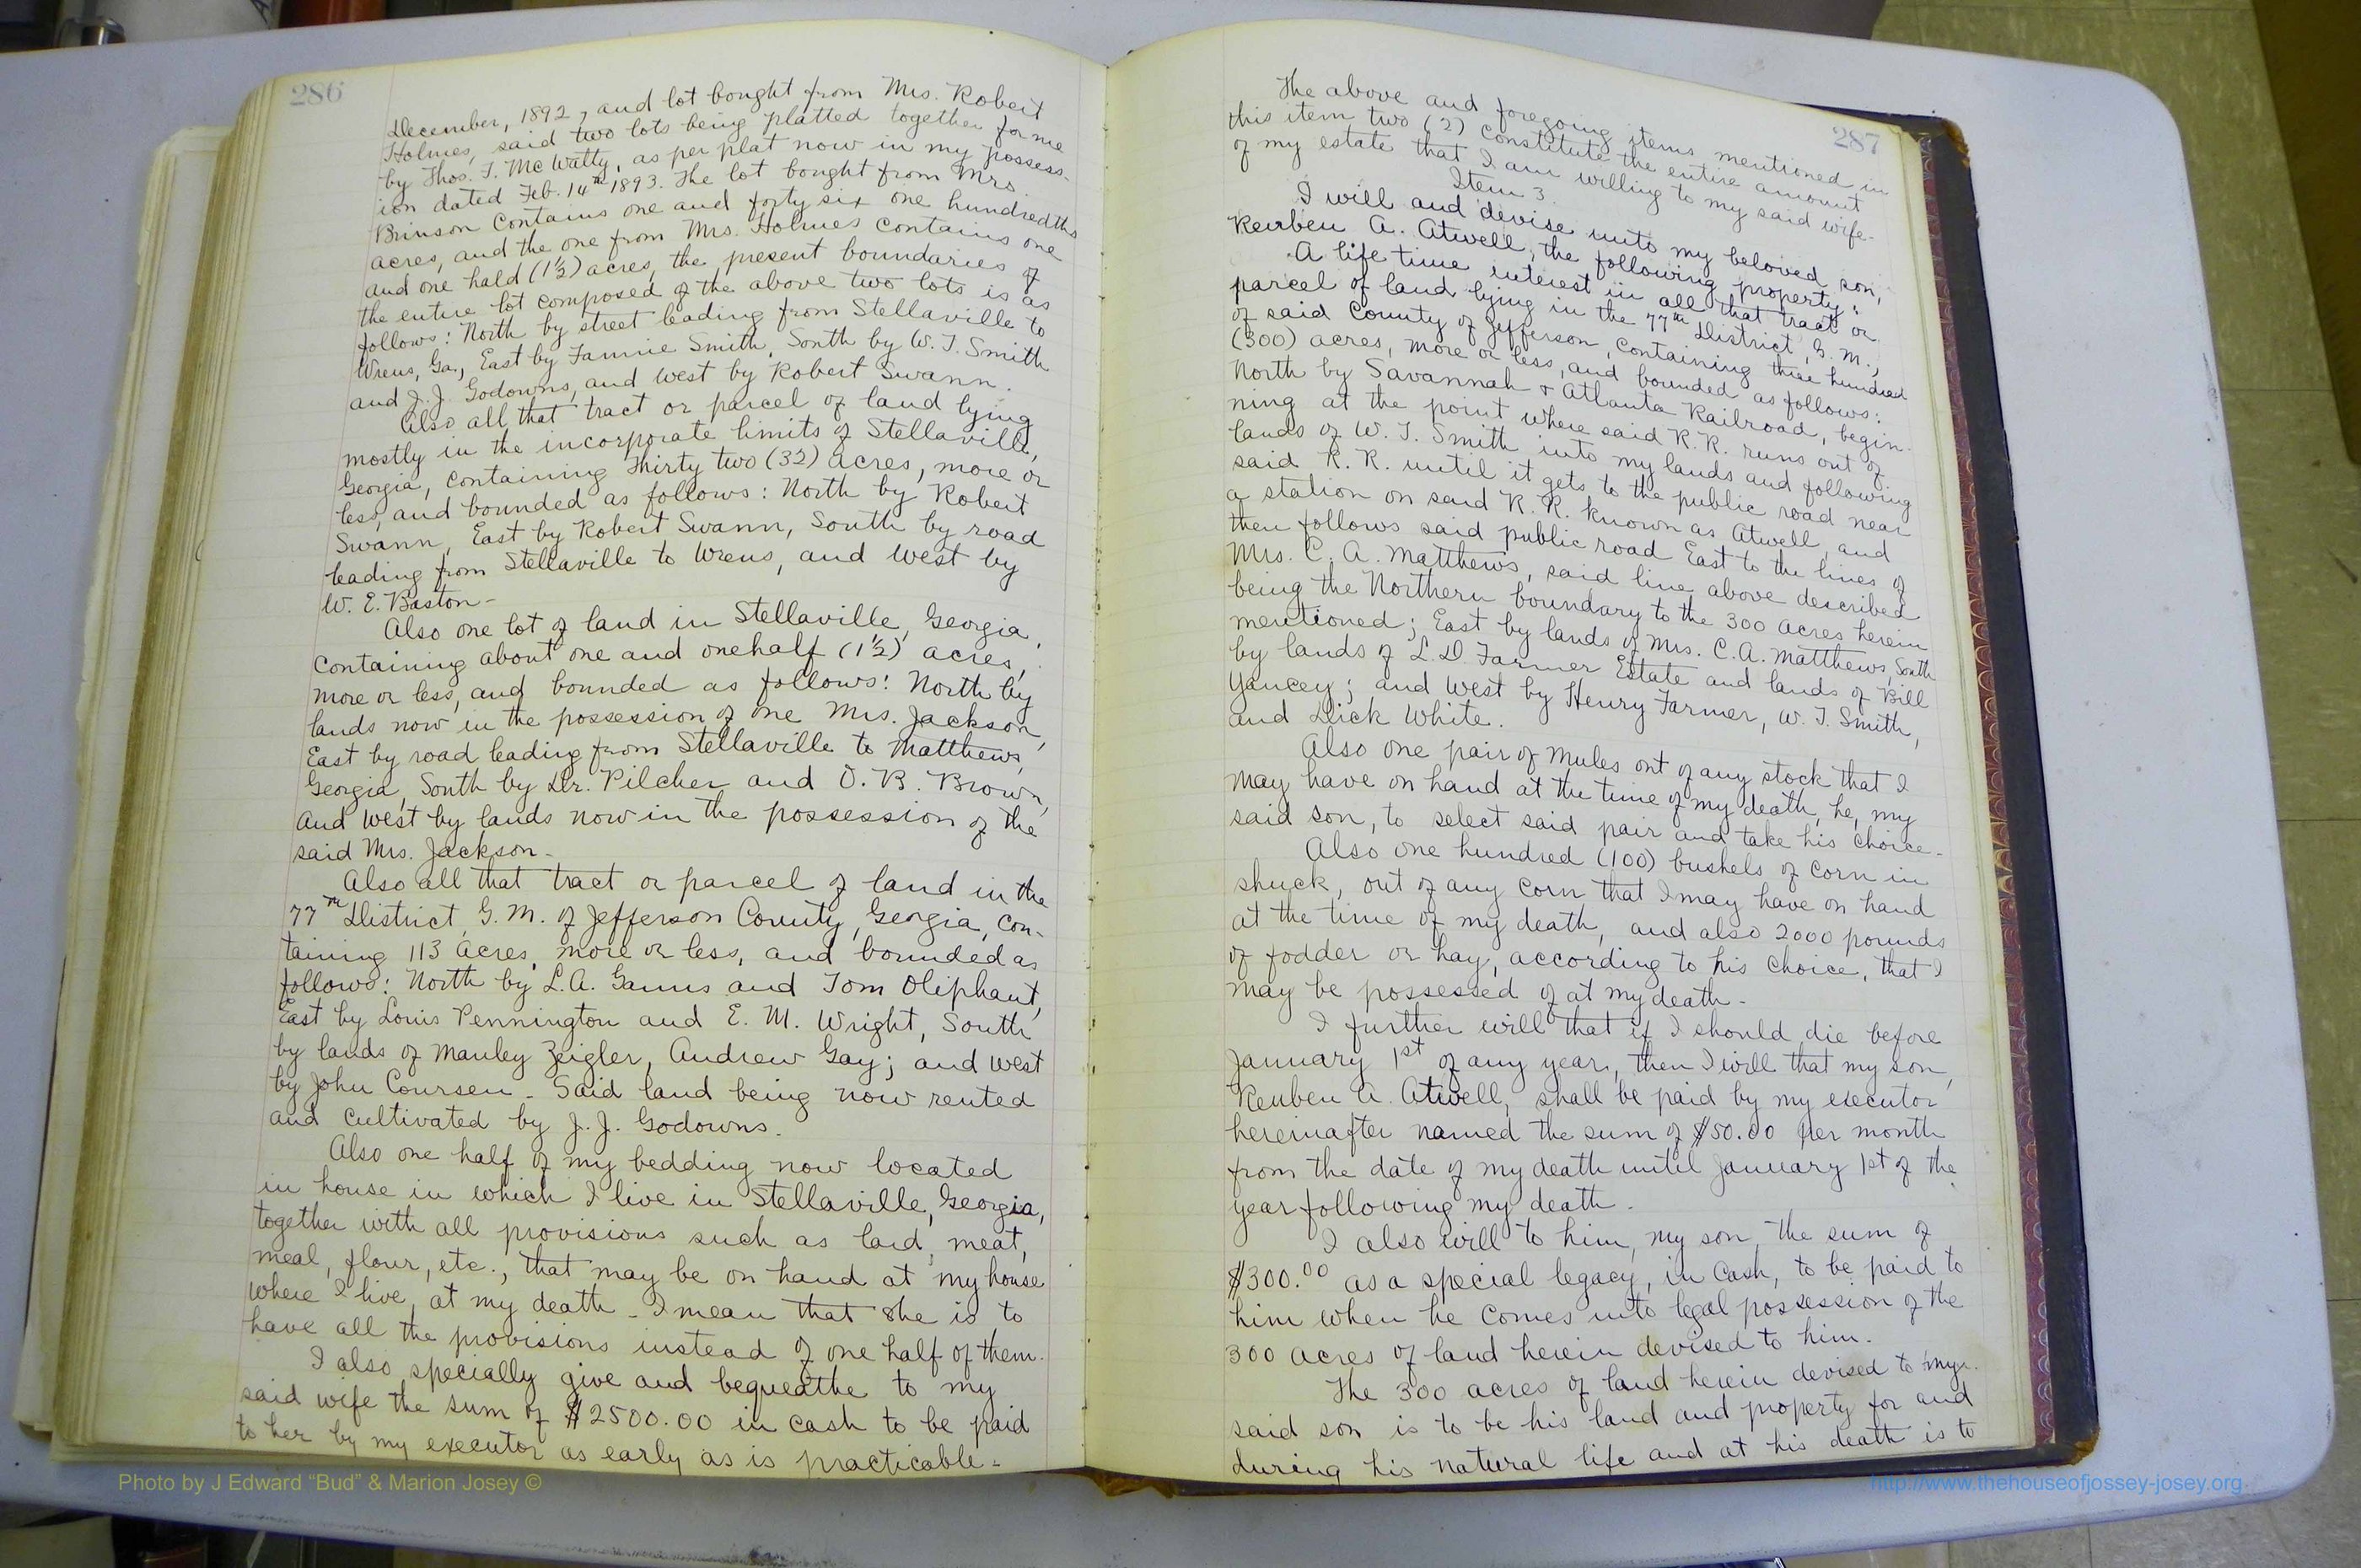 286
December, 1892, and lot bought from Mrs. Robert
Holmes, said two lots being platted together for me
by Thos. F. McWatty, as per plat now in my possess-
ion dated Feb. 14th 1893. The lot bought from Mrs.
Brinson contains one and forty six one hundredths
acres, and the one from Mrs. Holmes contains one
and one hald (1½) acres, the present boundaries of
the entire lot composed of the above two lots is as
follows: North by street leading from Stellaville to
Wrens, Ga., East by Fannie Smith, South by W. T. Smith
and J. J. Godowns, and West by Robert Swann.
Also all that tract or parcel of land lying
mostly in the incorporate limits of Stellaville,
Georgia, containing Thirty two (32) acres, more or
less, and bounded as follows: North by Robert
Swann, East by Robert Swann, South by road
leading from Stellaville to Wrens, and West by
W. E. Baston-
Also one lot of land in Stellaville, Georgia,
containing about one and onehalf (1½) acres,
more or less, and bounded as follows: North by
lands now in the possession of one Mrs. Jackson,
East by road leading from Stellaville to Matthews,
Georgia, South by Dr. Pilcher and O. B. Brown,
and West by lands now in the possession of the
said Mrs. Jackson-
Also all that tract or parcel of land in the
77th District, G. M. of Jefferson County, Georgia, con-
taining 113 acres, more or less, and bounded as
follows: North by L. A. Gamus and Tom Oliphant,
East by Louis Pennington and E. M. Wright, South
by lands of Manley Zeigler, Andrew Gay; and West
by John Coursen- Said land being now rented
and cultivated by J. J. Godowns.
Also one half of my bedding now located
in house in which I live in Stellaville, Georgia,
together with all provisions such as lard, meat,
meal, flour, etc., that may be on hand at my house
where I live, at my death- I mean that she is to
have all the provisions instead of one half of them.
I also specially give and bequeathe to my
said wife the sum of $2500.00 in cash to be paid
to her by my executor as early as is practicable-
287
The above and foregoing items mentioned in
this item two (2) constitute the entire amount
of my estate that I am willing to my said wife-
Item 3.
I will and devise unto my beloved son,
Reuben A. Atwell, the following property:
A life time interest in all that tract or
parcel of land lying in the 77th District, G. M.,
of said County of Jefferson, containing three hundred
(300) acres, more or less, and bounded as follows:
North by Savannah & Atlanta Railroad, begin-
ning at the point where said R. R. runs out of
lands of W. T. Smith into my lands and following
said R. R. until it gets to the public road near
a station on said R. R. known as Atwell, and
then follows said public road East to the lines of
Mrs. C. A. Matthews, said line above described
being the Northern boundary to the 300 acres herein
mentioned; East by lands of Mrs. C. A. Matthews, South
by lands of L. D. Farmer Estate and lands of Bill
Yancey; and West by Henry Farmer, W. T. Smith,
and Dick White.
Also one pair of mules out of any stock that I
may have on hand at the time of my death, he, my
said son, to select said pair and take his choice-
Also one hundred (100) bushels of corn in
shuck, out of any corn that I may have on hand
at the time of my death, and also 2000 pounds
of fodder or hay, according to his choice, that I
may be possessed of at my death-
I further will that if I should die before
January 1st of any year, then I will that my son,
Reuben A. Atwell, shall be paid by my executor
hereinafter named the sum of $50.00 per month
from the date of my death until January 1st of the
year following my death.
I also will to him, my son, the sum of
$300.00 as a special legacy, in cash, to be paid to
him when he comes into legal possession of the
300 acres of land herein devised to him.
The 300 acres of land herein devised to my
said son is to be his land and property for and
during his natural life and at his death is to
Photo by J Edward “Bud” & Marion Josey ©
http://www.thehouseofjossey-josey.org